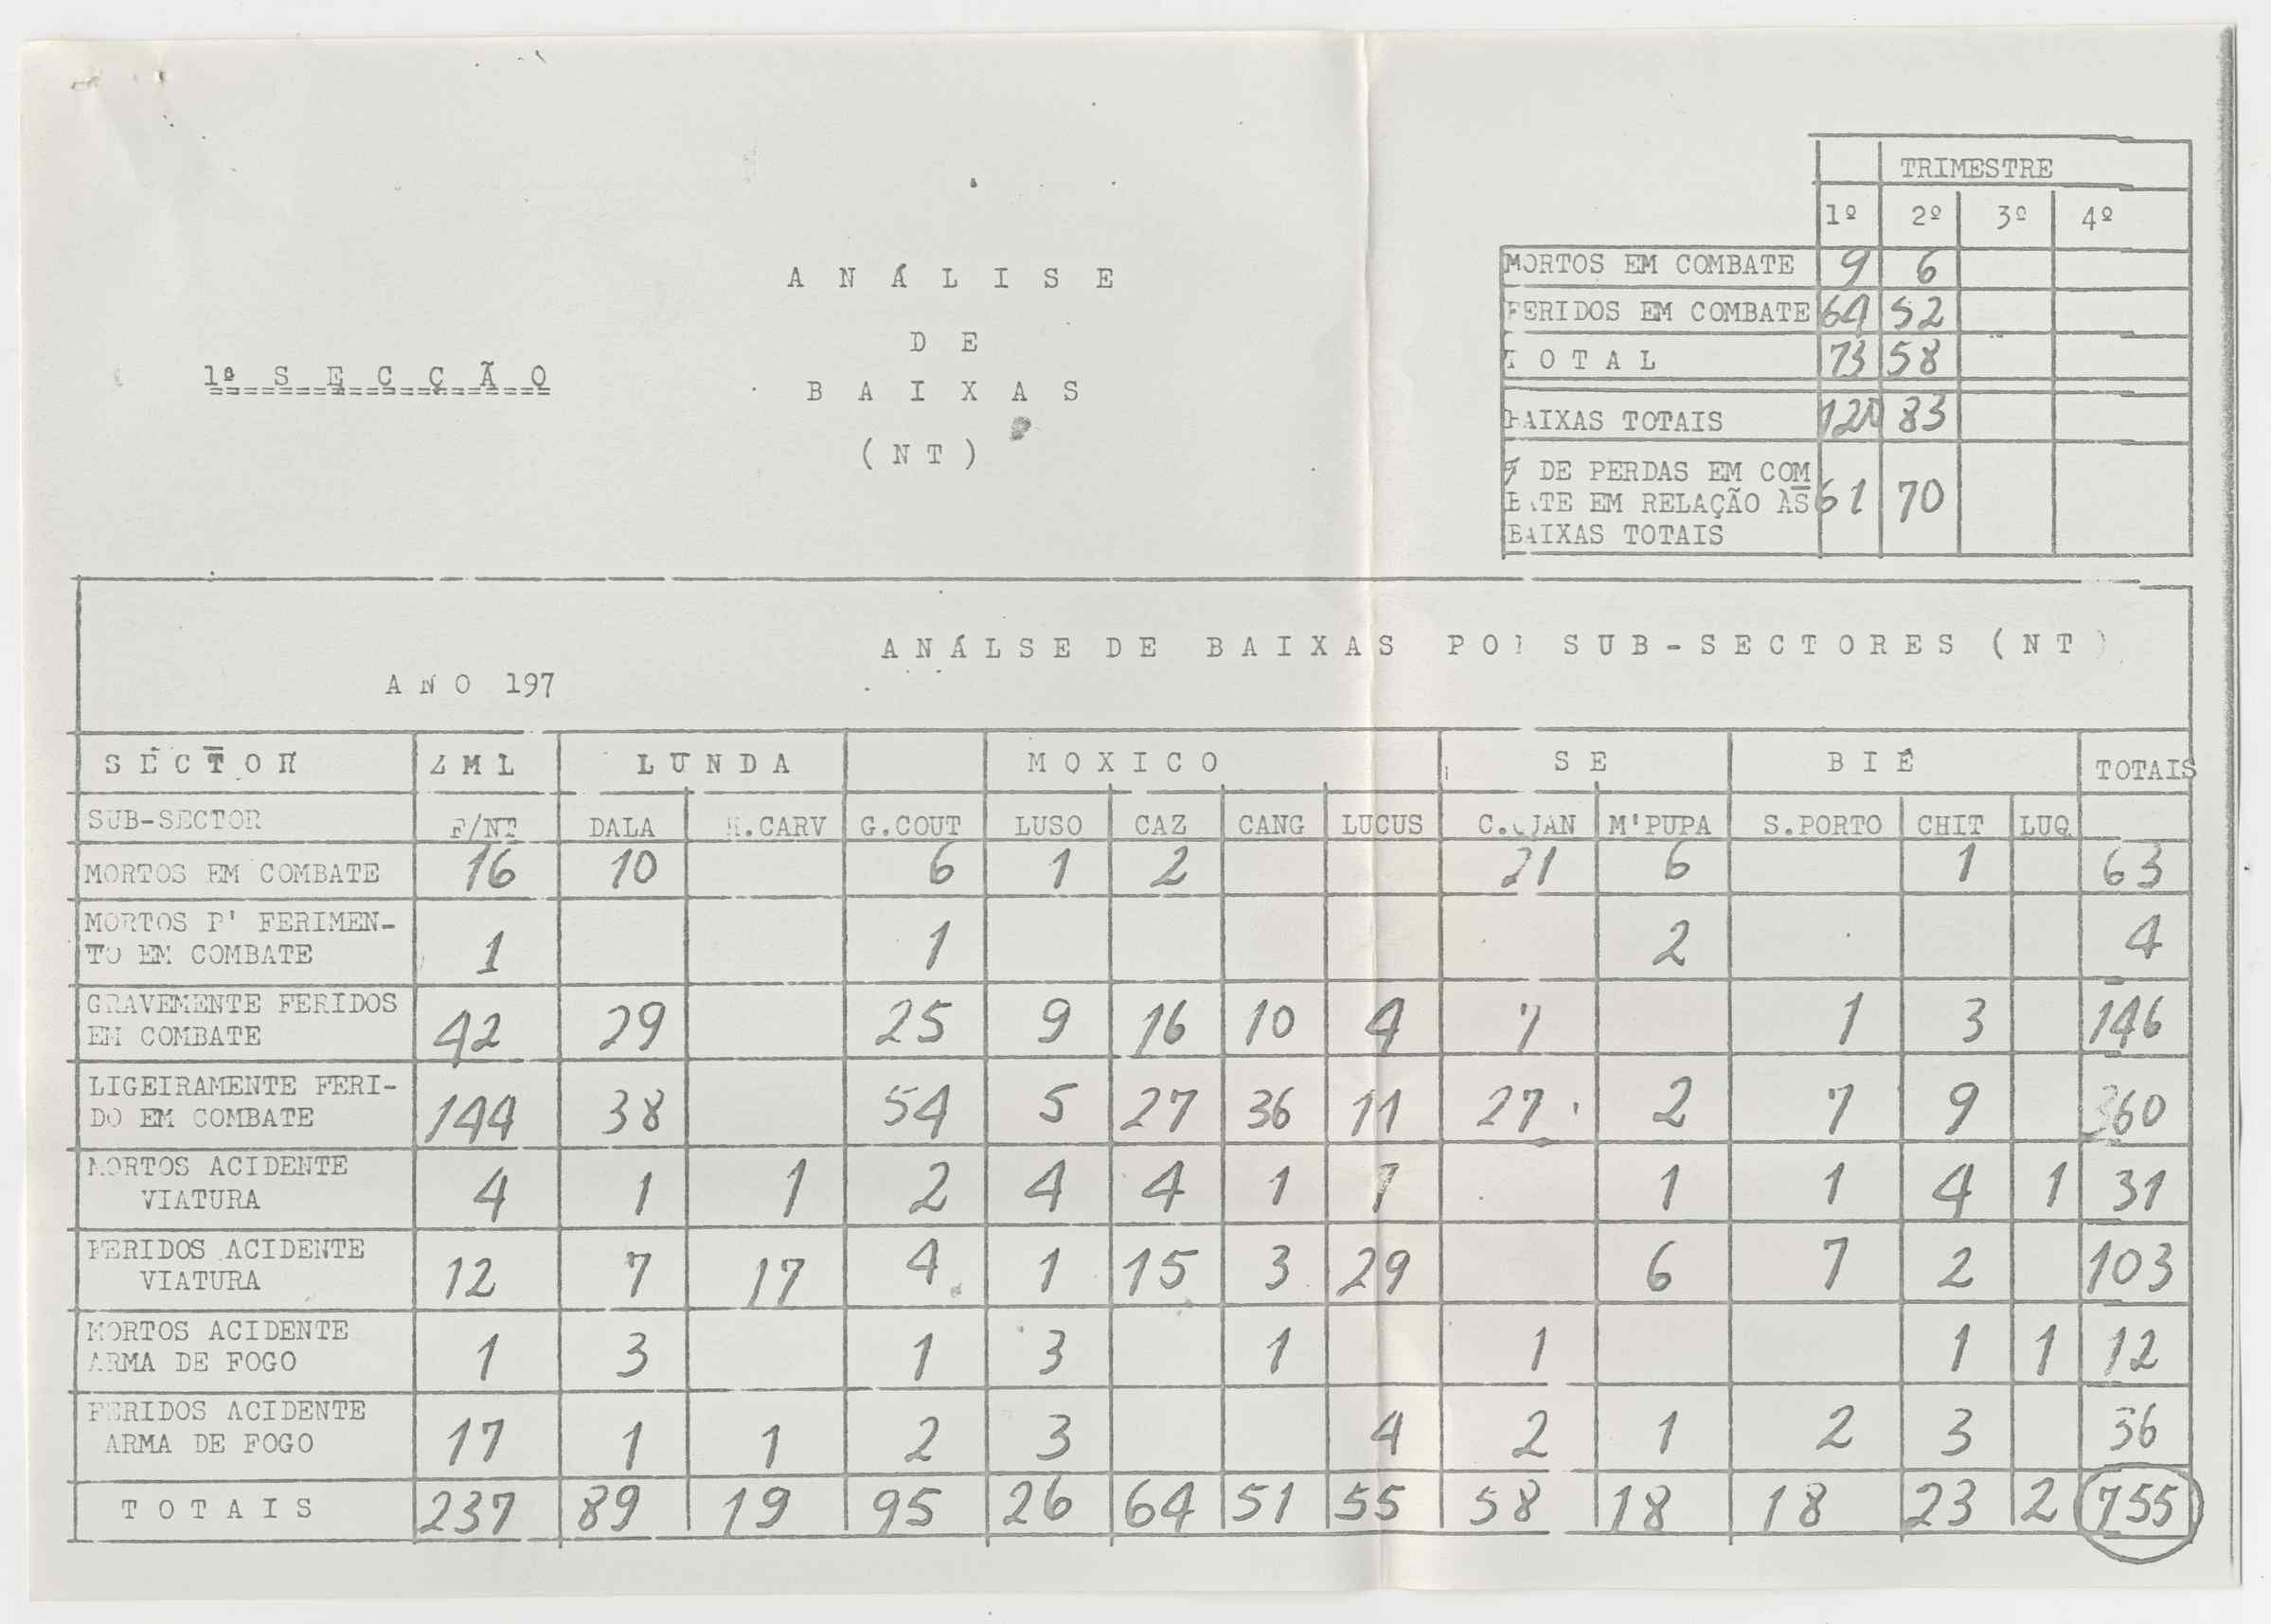 TRIMESTRE
1º 2º 3º 4º
MORTOS EM COMBATE 9 6
FERIDOS EM COMBATE 64 52
TOTAL 73 58
BAIXAS TOTAIS 120 83
% DE PERDAS EM COM
BATE EM RELAÇÃO ÀS 61 70
BAIXAS TOTAIS
ANÁLISE
DE
1ª SECÇÃO
BAIXAS
(NT)
ANÁLSE DE BAIXAS POR SUB-SECTORES (NT)
ANO 197
SECTOR ZML LUNDA MOXICO SE BIÉ TOTAIS
SUB-SECTOR F/NT DALA H.CARV G.COUT LUSO CAZ CANG LUCUS C.CUAN M'PUPA S.PORTO CHIT LUQ
MORTOS EM COMBATE 16 10 6 1 2 21 6 1 63
MORTOS P' FERIMEN-
TO EM COMBATE 1 1 2 4
GRAVEMENTE FERIDOS
EM COMBATE 42 29 25 9 16 10 4 7 1 3 146
LIGEIRAMENTE FERI-
DO EM COMBATE 144 38 54 5 27 36 11 27 2 7 9 360
MORTOS ACIDENTE
VIATURA 4 1 1 2 4 4 1 7 1 1 4 1 31
FERIDOS ACIDENTE
VIATURA 12 7 17 4 1 15 3 29 6 7 2 103
MORTOS ACIDENTE
ARMA DE FOGO 1 3 1 3 1 1 1 1 12
FERIDOS ACIDENTE
ARMA DE FOGO 17 1 1 2 3 4 2 1 2 3 36
TOTAIS 237 89 19 95 26 64 51 55 58 18 18 23 2 755